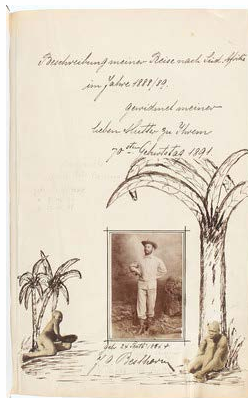 Beschreibung meiner Reise nach Süd Afrika
im Jahre 1888/89.
gewidmet meiner
lieben Mutter zu Ihrem
70sten Geburtstag 1891.